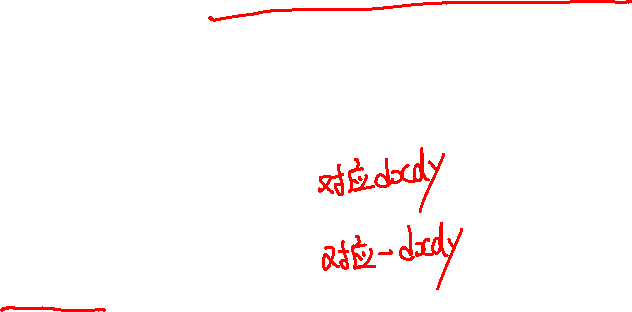 对应dxdy
对应-dxdy